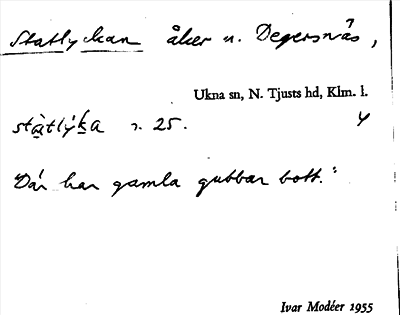 Statlyckan åker n. Degersnäs,
Ukna sn, N. Tjusts hd, Klm. l.
25. 4
"Där har gamla gubbar bott."
Ivar Modéer 1955